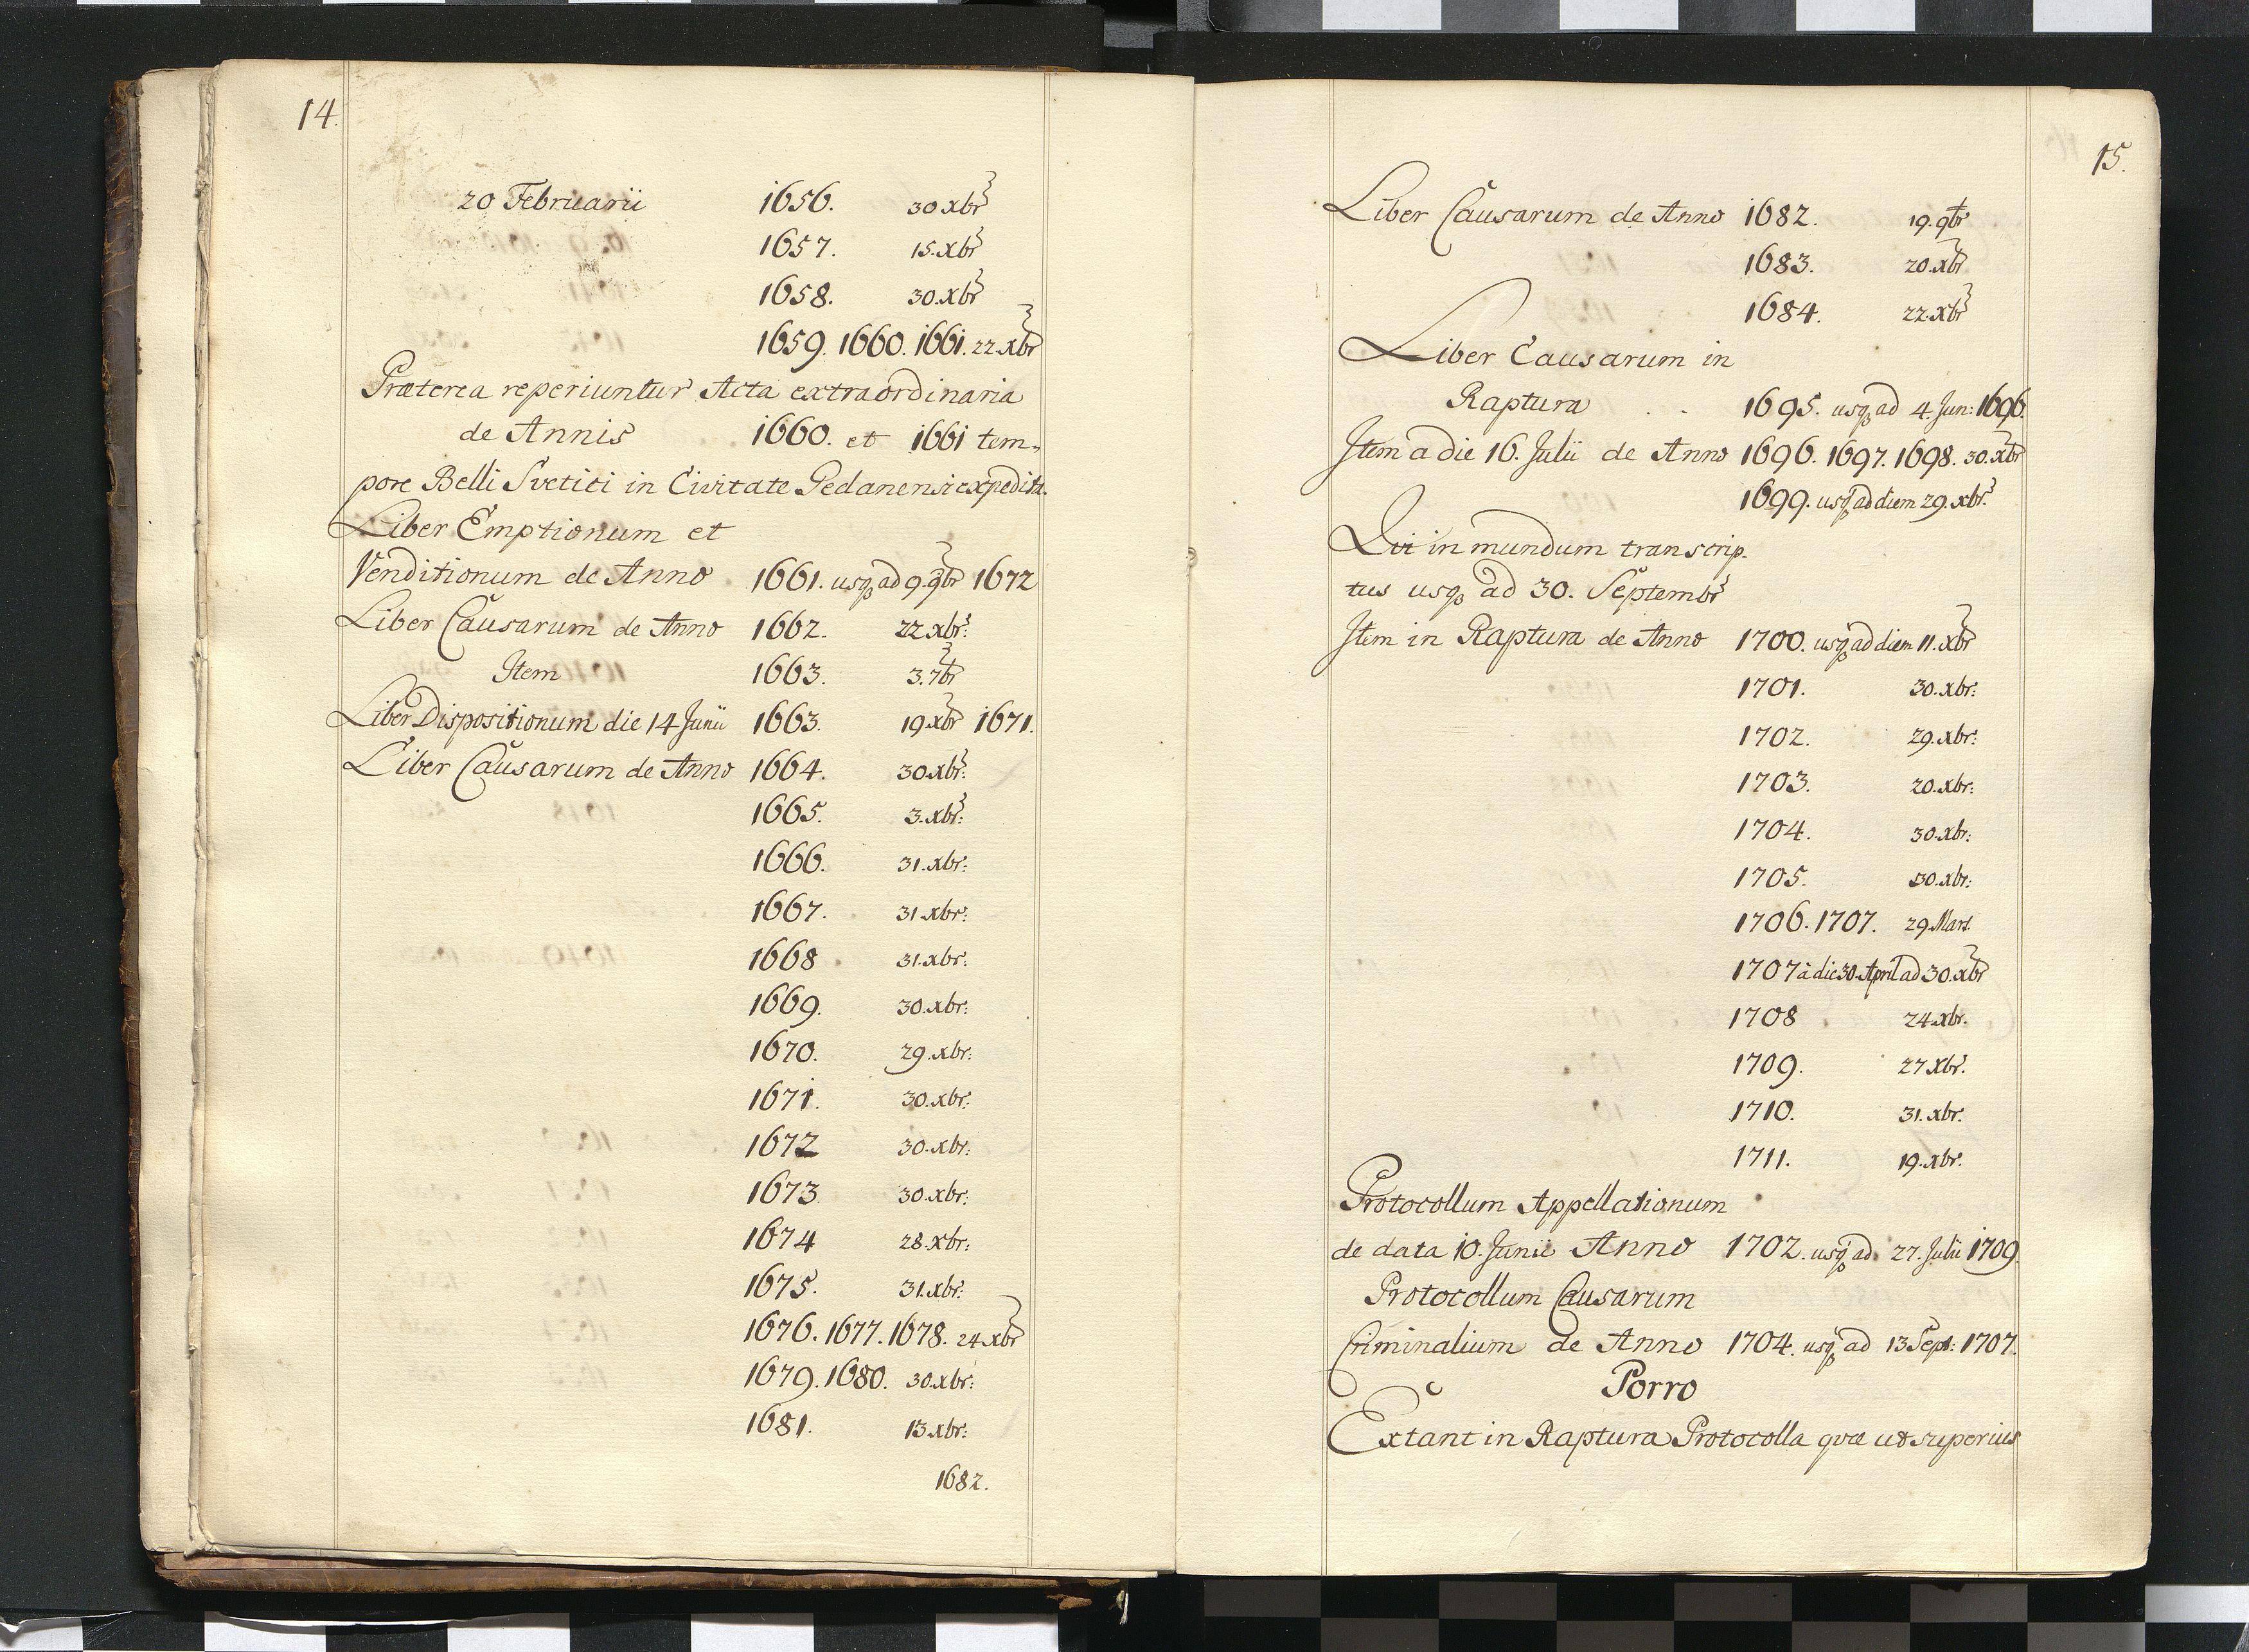 14.
20 Februarii 1656. 30 xbr
1657. 15. xbr
1658. 30. xbr
1659. 1660. 1661. 22. xbr
Præterea reperiuntur Acta extraordinaria
de Annis 1660. et 1661 tem„
pore Belli Svetici in Civitate Gedanensi expedita.
Liber Emptionum et
Venditionum de Anno 1661. usq ad 9. 9br 1672
Liber Causarum de Anno 1662. 22 xbr:
Item 1663. 3. 7br
Liber Dispositionum die 14 Junii 1663. 19 xbr 1671.
Liber Causarum de Anno 1664. 30 xbr:
1665. 3. xbr:
1666. 31. xbr:
1667. 31 xbr:
1668. 31. xbr:
1669. 30. xbr:
1670. 29. xbr:
1671. 30. xbr:
1672 30. xbr:
1673. 30. xbr:
1674 28. xbr:
1675. 31. xbr:
1676. 1677. 1678. 24 xbr
1679. 1680. 30 xbr:
1681. 13 xbr:
1682.
15.
Liber Causarum de Anno 1682. 19. 9br
1683. 20. xbr
1684. 22 xbr
Liber Causarum in
Raptura . . 1695. usq ad 4. Jun: 1696.
Item a die 16. Julii de Anno 1696. 1697. 1698. 30. xbr
1699. usq ad diem 29. xbr.
Qvi in mundum transcrip.
tus usq ad 30. Septembr
Item in Raptura de Anno 1700. usq ad diem 11. xbr
1701. 30. xbr:
1702. 29. xbr:
1703. 20. xbr:
1704. 30. xbr:
1705. 30. xbr:
1706. 1707. 29 Mart.
1707 à die 30. April ad 30. xbr
1708 24 xbr.
1709. 27 xbr.
1710. 31. xbr.
1711. 19. xbr.
Protocollum Appellationum
de data 10. Junii Anno 1702. usq ad 27. Julii 1709.
Protocollum Causarum
Criminalium de Anno 1704. usq ad 13 Sept: 1707.
Porro
Extant in Raptura Protocolla qvæ ut superius